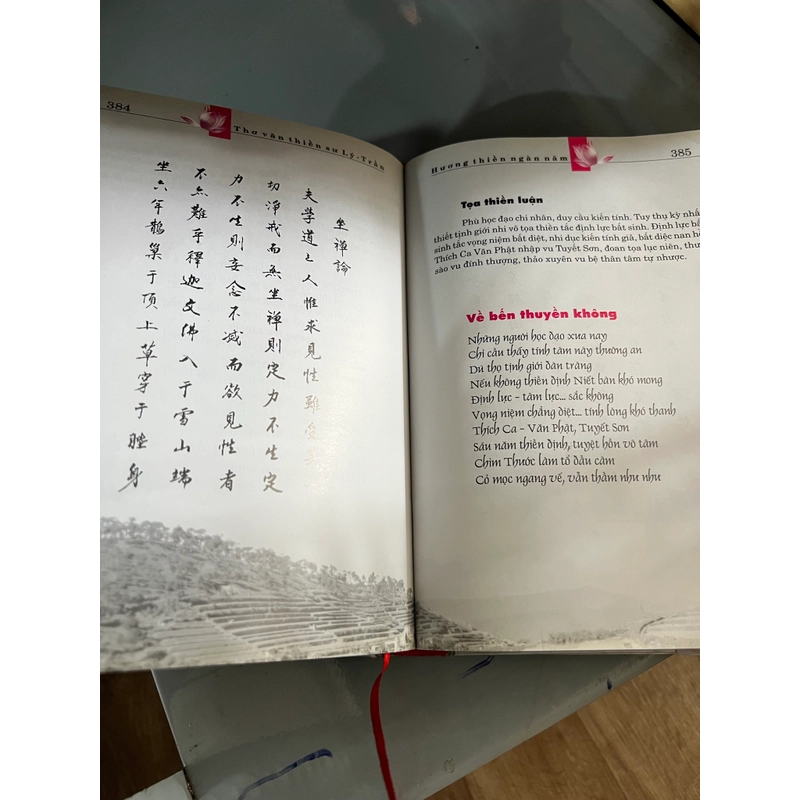 384
Thơ văn thiền sư Lý - Trần
坐禪論
夫學道之人惟求見性雖受
切淨戒而無坐禪則定力不生定
力不生則妄念不滅而欲見性者
不亦難乎釋迦文佛入于雪山端
坐六年鵲巢于頂上草穿于身
Hương thiền ngàn năm
385
Tọa thiền luận
Phù học đạo chi nhân, duy cầu kiến tính. Tuy thụ kỳ nhấ
thiết tịnh giới nhi vô tọa thiền tắc định lực bất sinh. Định lực bấ
sinh tắc vọng niệm bất diệt, nhi dục kiến tính giả, bất diệc nan h
Thích Ca Văn Phật nhập vu Tuyết Sơn, đoan tọa lục niên, thư
sào vu đỉnh thượng, thảo xuyên vu bệ thân tâm tự nhược.
Về bến thuyền không
Những người học đạo xưa nay
Chỉ cầu thấy tính tâm này thường an
Dù thọ tịnh giới đàn tràng
Nếu không thiền định Niết bàn khó mong
Định lực - tâm lực... sắc không
Vọng niệm chẳng diệt... tính lòng khó thanh
Thích Ca - Văn Phật, Tuyết Sơn
Sáu năm thiền định, tuyệt hôn vô tâm
Chim Thước làm tổ đầu cắm
Cỏ mọc ngang vế, vẫn thầm như như